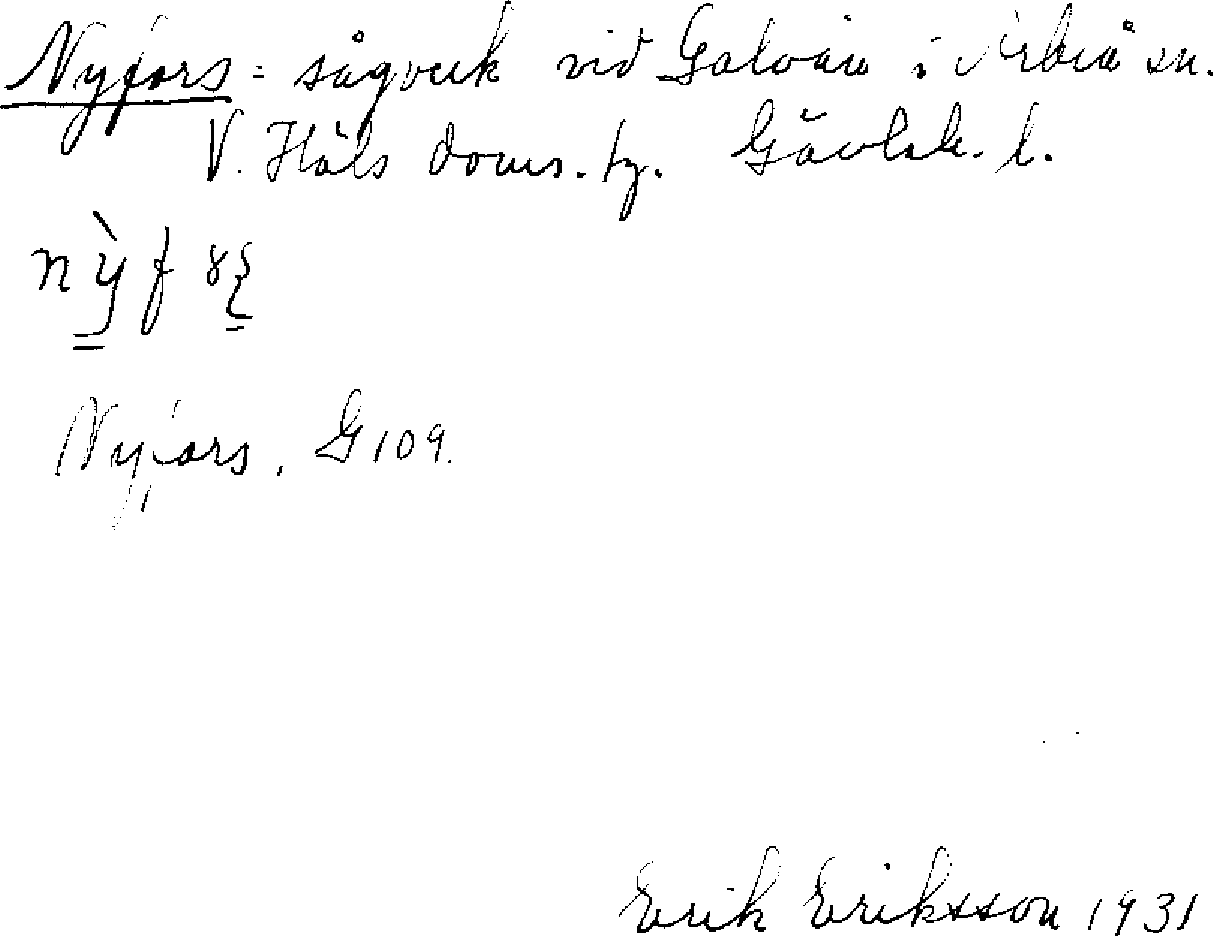 Nyfors = sågverk vid Galvån i Arbrå sn.
V. Häls doms. tg. Gävleb. l.
nỳf
Nyfors. G109.
Erik Eriksson 1931